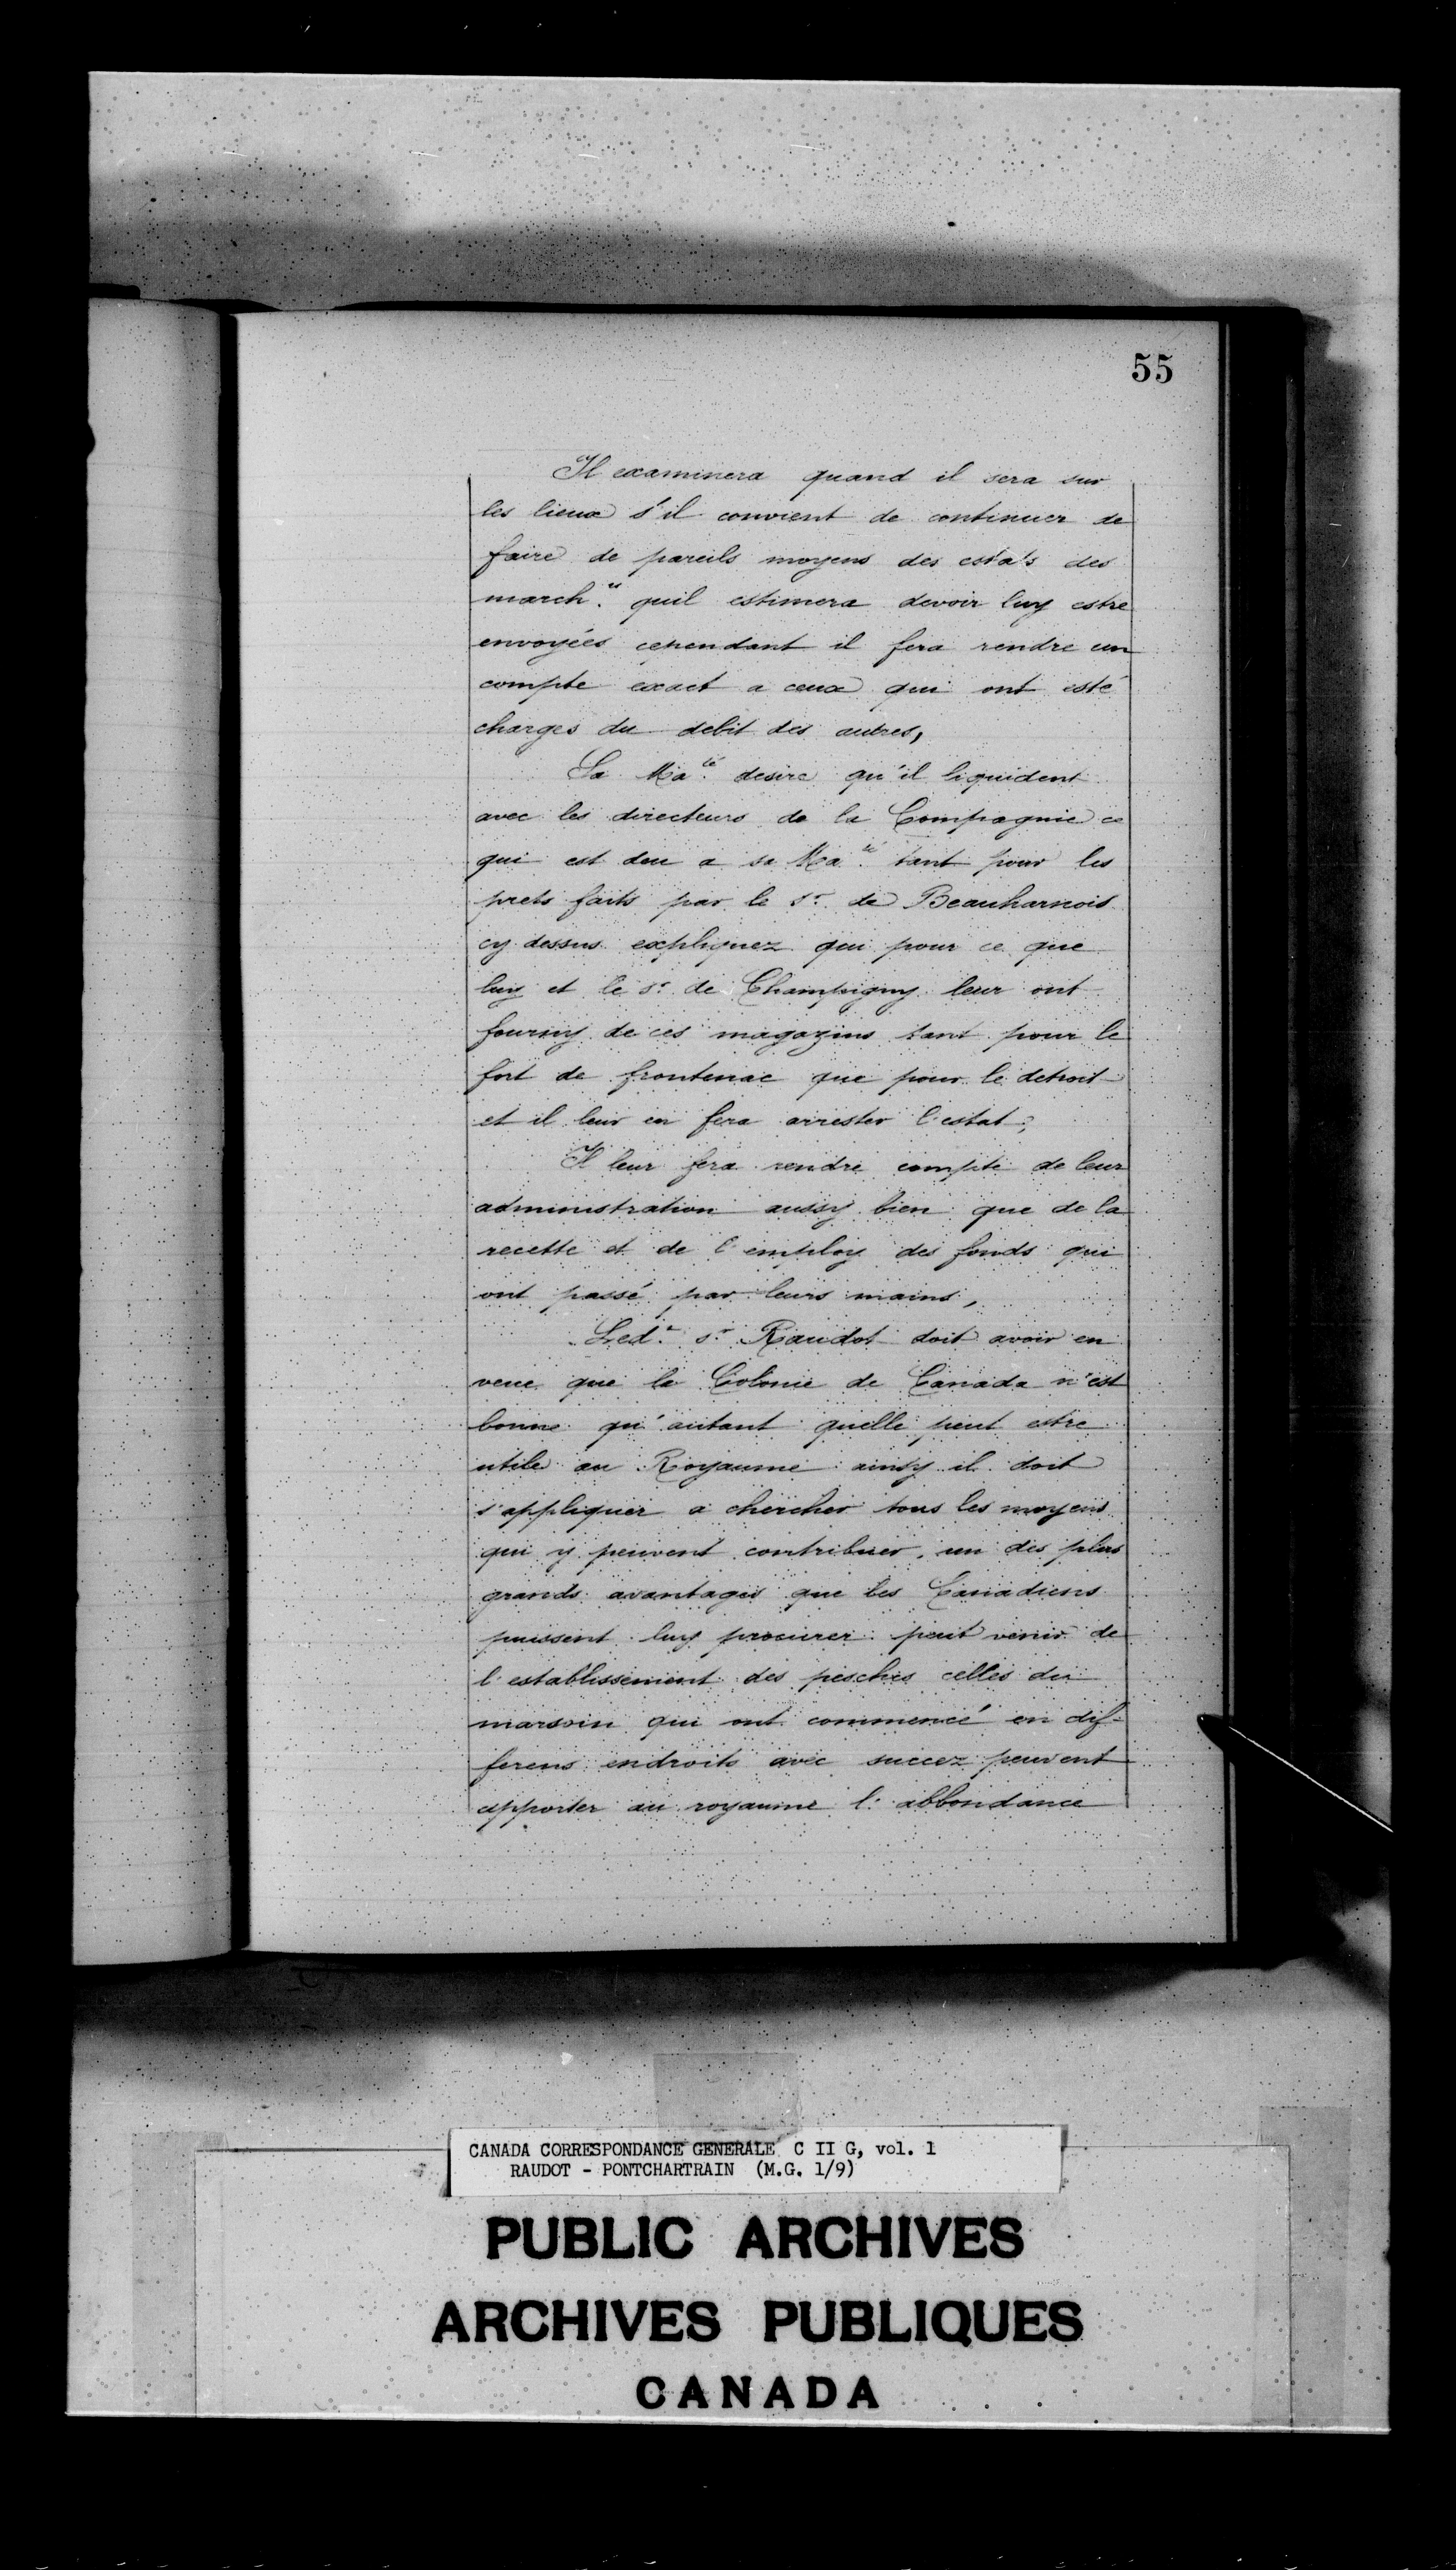 55
Il examinera quand il sera sur
les lieux s'il convient de continuer de
faire de pareils moyens des estats des
march.es quil estimera devoir luy estre
envoyées cependant il fera rendre un
compte exact a ceux qui ont esté
charges du debit des autres,
Sa Ma.té desire qu'il liquident
avec les directeurs de la Compagnie ce
qui est deu a sa Ma.té tant pour les
prets faits par le s.r de Beauharnois
cy dessus expliquez qui pour ce que
luy et le s.r de Champigny leur ont
fourny de ces magazins tant pour le
fort de frontenac que pour le detroit
et il leur en fera arrester l'estat,
Il leur fera rendre compte de leur
administration aussy bien que de la
recette et de l'employ des fonds qui
ont passé par leurs mains,
Led.t s.r Raudot doit avoir en
veue que la Colonie de Canada n'est
bonne qu'autant quelle peut estre
utile au Royaume ainsy il doit
s'appliquer a chercher tous les moyens
qui y peuvent contribuer, un des plus
grands avantages que les Canadiens
puissent luy procurer peut venir de
l'establissement des pesches celles du
marsoin qui ont commencé en dif-
ferens endroits avec succez peuvent
apporter au royaume l'abbondance
CANADA CORRESPONDANCE GENERALE C II G, vol. 1
RAUDOT - PONTCHARTRAIN (M.G. 1/9)
PUBLIC ARCHIVES
ARCHIVES PUBLIQUES
CANADA